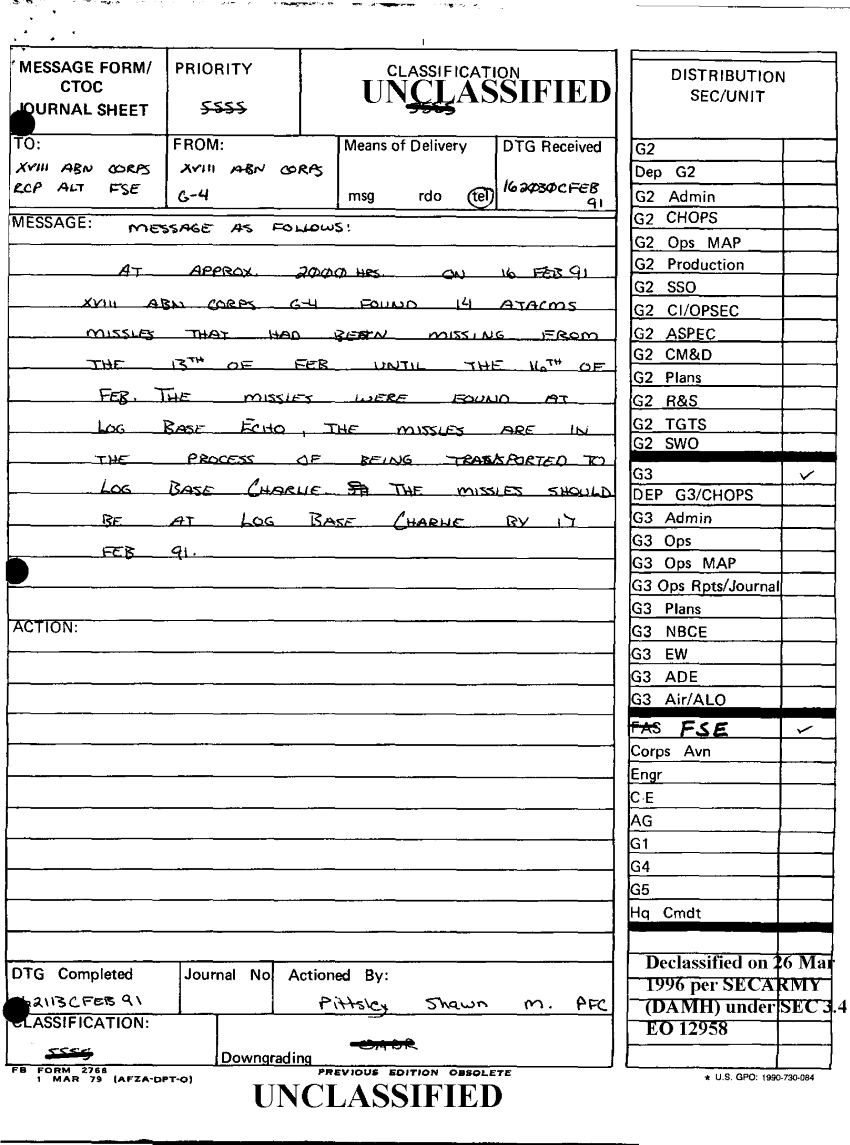 MESSAGE FORM/
CTOC
JOURNAL SHEET
PRIORITY
SSSS
CLASSIFICATION
UNCLASSIFIED
SSSS
TO:
XVIII ABN CORPS
RCP ALT FSE
FROM:
XVIII ABN CORPS
G-4
Means of Delivery
msg rdo tel
DTG Received
162030CFEB
91
MESSAGE: MESSAGE AS FOLLOWS:
AT APPROX. 2000 HRS. ON 16 FEB 91
XVIII ABN CORPS G-4 FOUND 14 ATACMS
MISSLES THAT HAD BEEN MISSING FROM
THE 13TH OF FEB UNTIL THE 16TH OF
FEB. THE MISSLES WERE FOUND AT
LOG BASE ECHO, THE MISSLES ARE IN
THE PROCESS OF BEING TRANSPORTED TO
LOG BASE CHARLIE THE MISSLES SHOULD
BE AT LOG BASE CHARLIE BY 17
FEB 91.
ACTION:
DTG Completed
162113CFEB91
Journal No
Actioned By:
Pittsley Shawn M. PFC
CLASSIFICATION:
SSSS
Downgrading
OADR
FB FORM 2768
1 MAR 79 (AFZA-DPT-O)
PREVIOUS EDITION OBSOLETE
UNCLASSIFIED
DISTRIBUTION
SEC/UNIT
G2
Dep G2
G2 Admin
G2 CHOPS
G2 Ops MAP
G2 Production
G2 SSO
G2 CI/OPSEC
G2 ASPEC
G2 CM&D
G2 Plans
G2 R&S
G2 TGTS
G2 SWO
G3 ✓
DEP G3/CHOPS
G3 Admin
G3 Ops
G3 Ops MAP
G3 Ops Rpts/Journal
G3 Plans
G3 NBCE
G3 EW
G3 ADE
G3 Air/ALO
FAS FSE ✓
Corps Avn
Engr
C-E
AG
G1
G4
G5
Hq Cmdt
Declassified on 26 Mar
1996 per SECARMY
(DAMH) under SEC 3.4
EO 12958
★ U.S. GPO: 1990-730-084